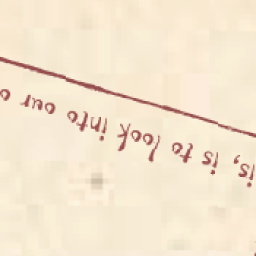 is, is to look into our